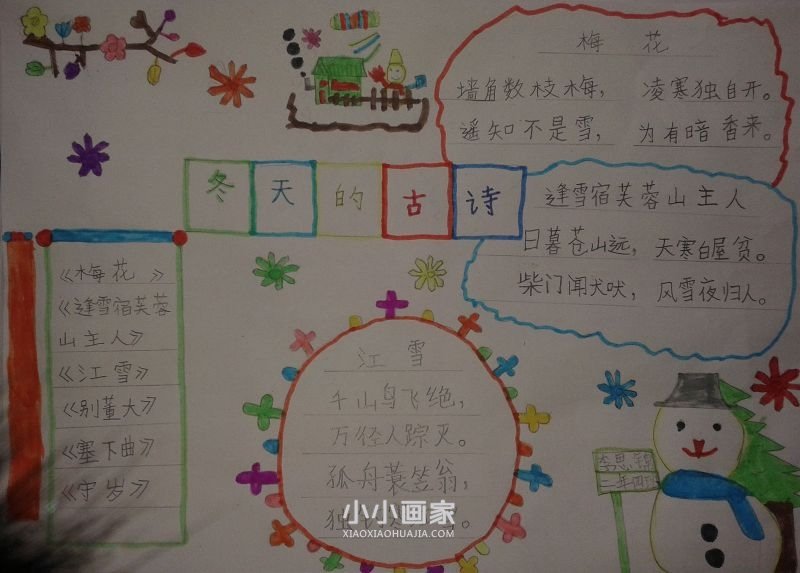 梅 花
墙角数枝梅， 凌寒独自开。
遥知不是雪， 为有暗香来。
冬天的古诗
逢雪宿芙蓉山主人
日暮苍山远，天寒白屋贫。
柴门闻犬吠，风雪夜归人。
《梅花》
《逢雪宿芙蓉
山主人》
《江雪》
《别董大》
《塞下曲》
《守岁》
江 雪
千山鸟飞绝，
万径人踪灭。
孤舟蓑笠翁，
独
李思锦
二年四班
小小画家
XIAOXIAOHUAJIA.COM